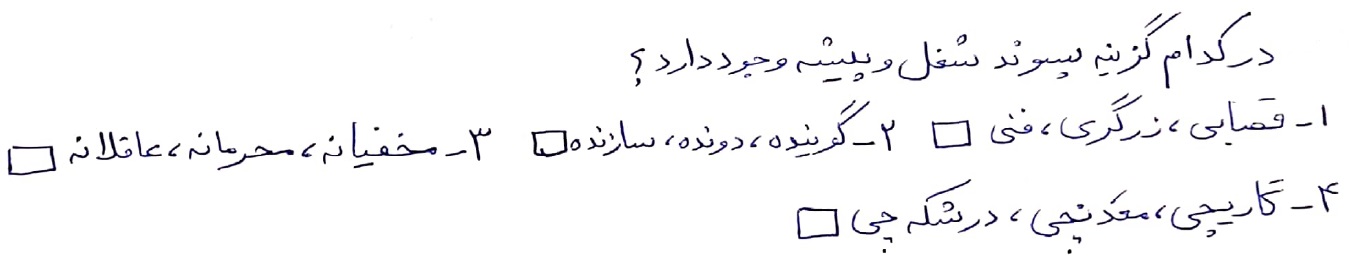 در کدام گزینه پسوند شغل و پیشه وجود دارد؟
۱ـ قصابی، زرگری، فنی □ ۲ـ گوینده، دونده، سازنده □ ۳ـ مخفیانه، محرمانه، عاقلانه □
۴ـ گاریچی، معدنچی، درشکه چی □